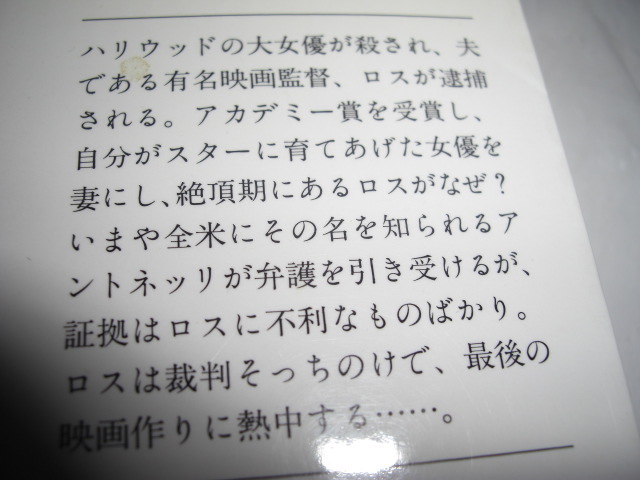 ハリウッドの大女優が殺され、夫
である有名映画監督、ロスが逮捕
される。アカデミー賞を受賞し、
自分がスターに育てあげた女優を
妻にし、絶頂期にあるロスがなぜ?
いまや全米にその名を知られるア
ントネッリが弁護を引き受けるが、
証拠はロスに不利なものばかり。
ロスは裁判そっちのけで、最後の
映画作りに熱中する……。